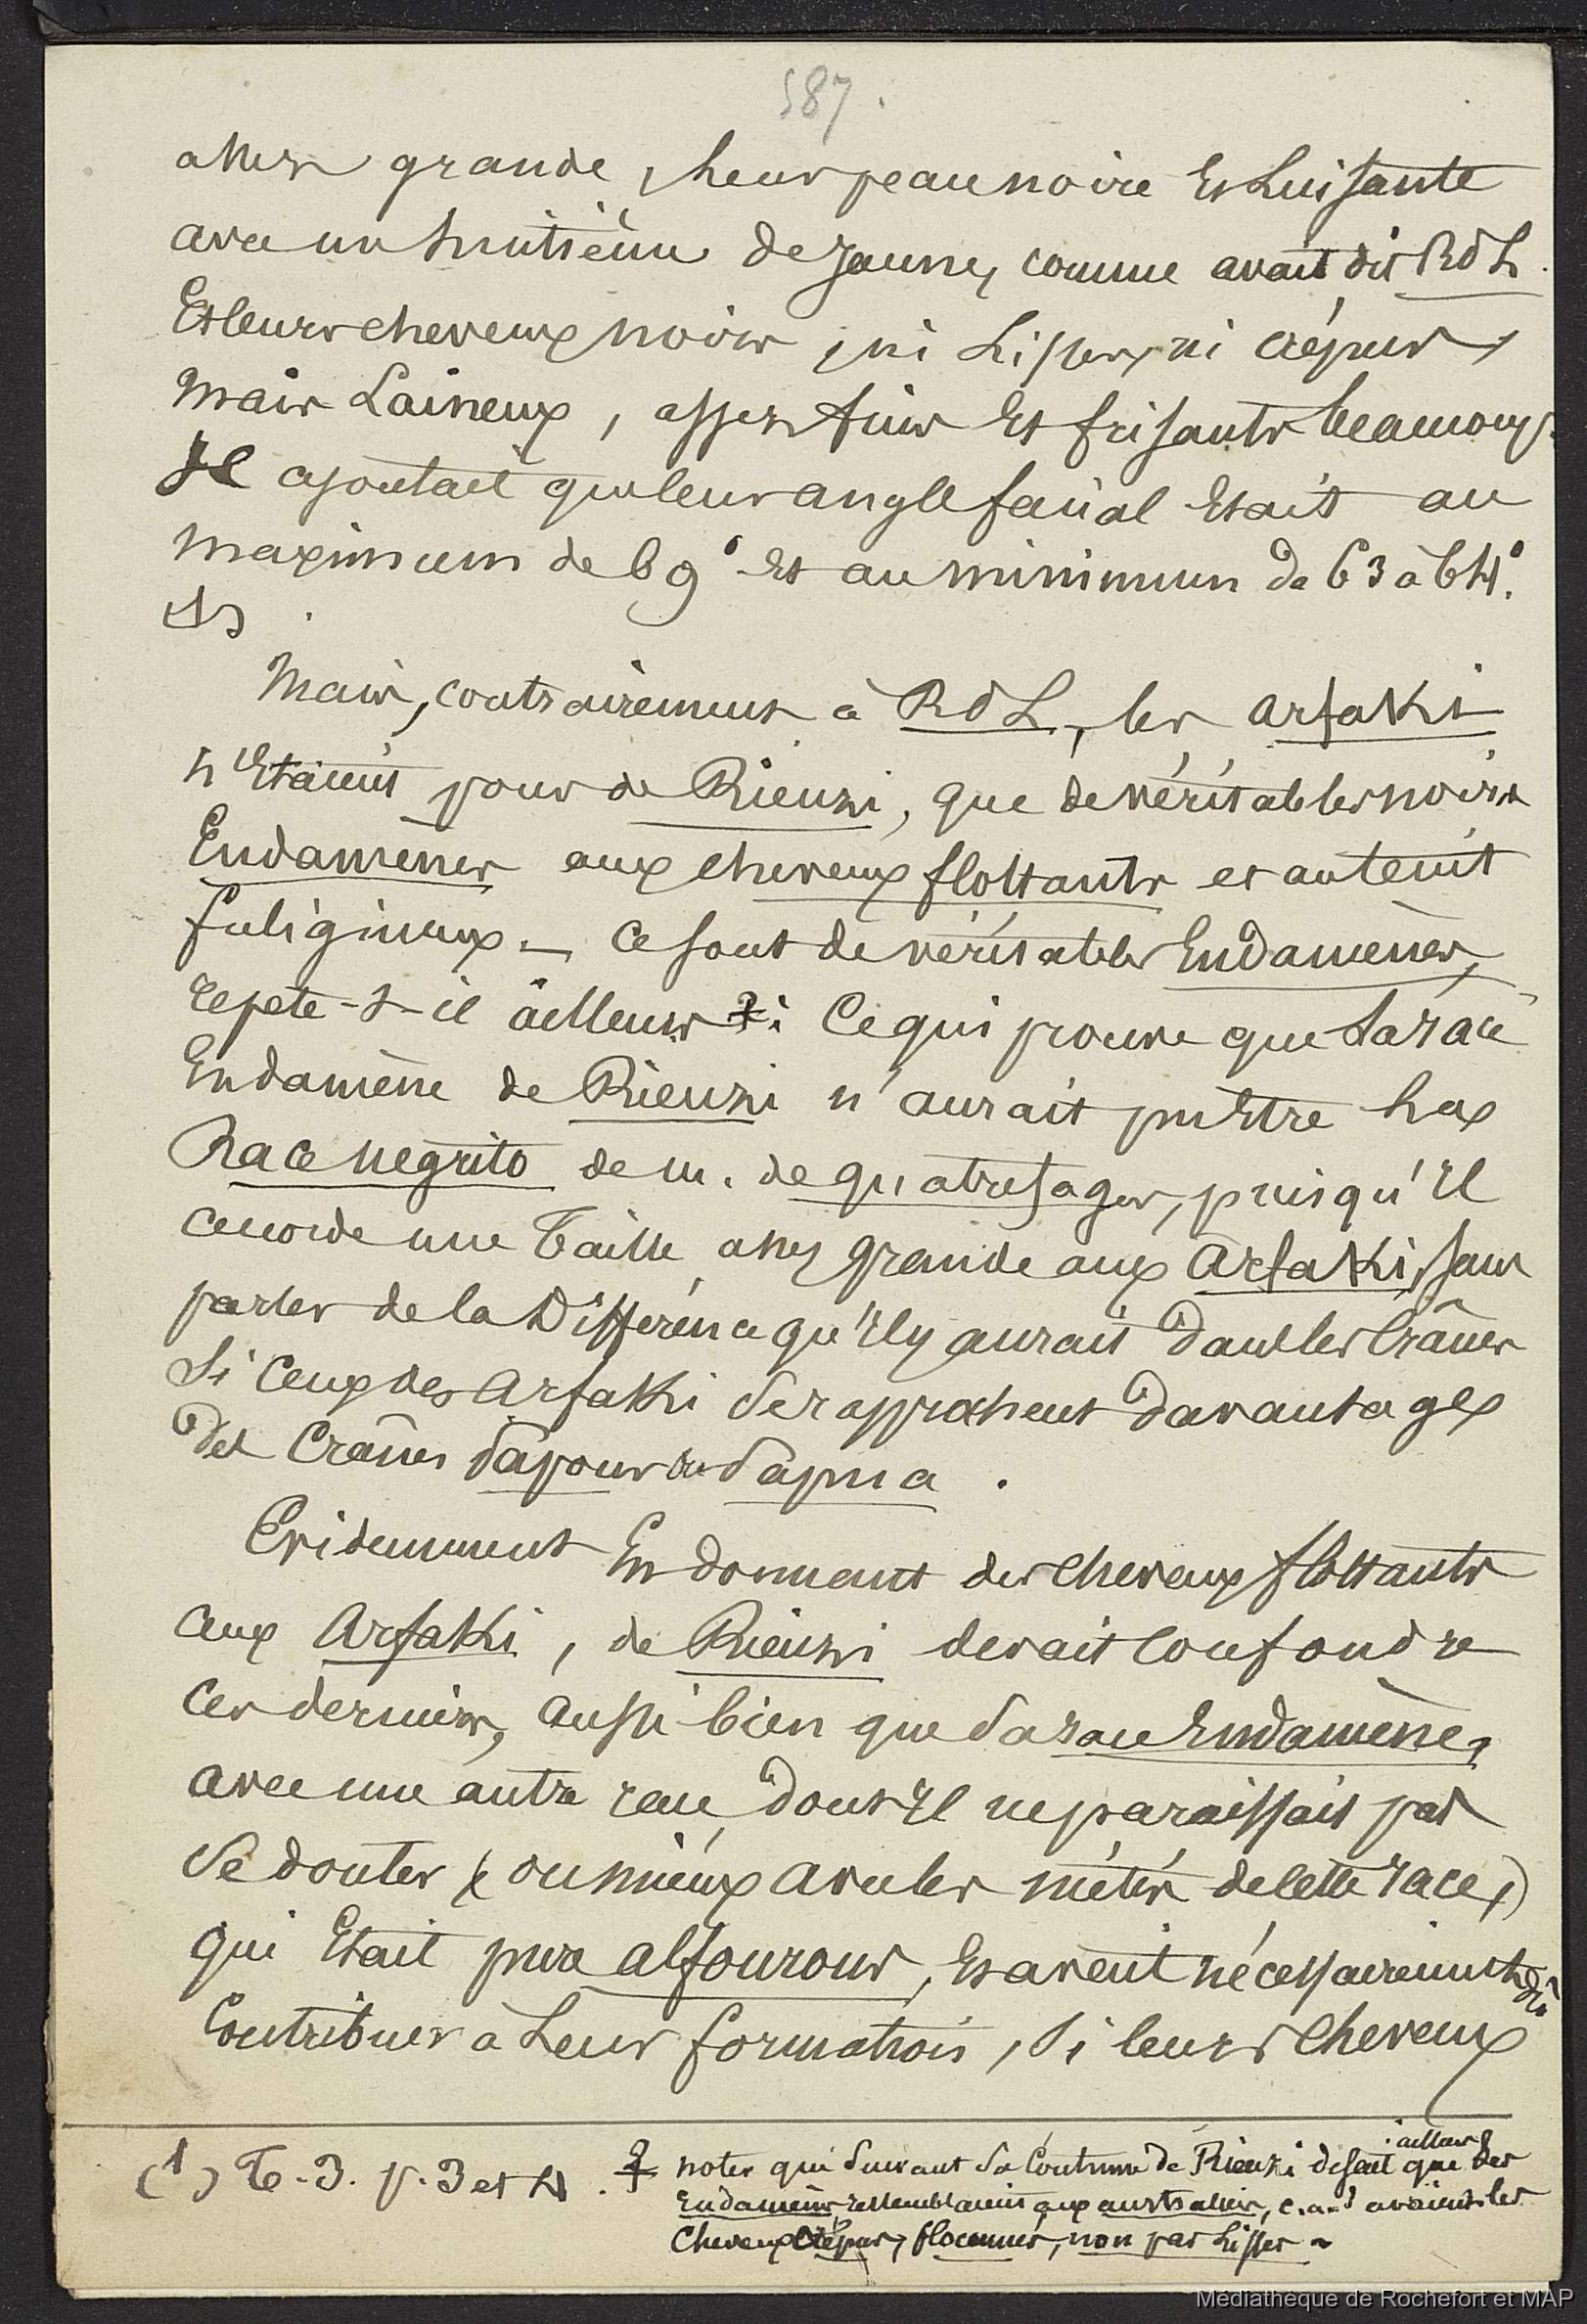 587.
assez grande, leur peau noire et luisante
avec un huitième de jaune, comme avait dit RdL.
Et leurs cheveux noirs, ni lisses, ni crépus,
mais laineux, assez fins et frisants beaucoup.
Il ajoutait que leur angle facial était au
maximum de 69° et au minimum de 63 à 64°.
(1)
Mais, contrairement à RdL, les arfakis
n'étaient pour de Rienzi, que de véritables noirs
Endamènes aux cheveux flottants et au teint
fuligineux. — Ce sont de véritables Endamènes,
répète-t-il ailleurs 2; ce qui prouve que sa race
Endamène de Rienzi n'aurait pu être la
Race negrito de m. de quatrefages, puisqu'il
accorde une taille assez grande aux arfakis, sans
parler de la différence qu'il y aurait dans les crânes
si ceux des arfakis se rapprochent davantage
des crânes papous ou papua.
Evidemment en donnant des cheveux flottants
aux arfakis, de Rienzi devait confondre
ces derniers, aussi bien que sa race Endamène,
avec une autre race, dont il ne paraissait pas
se douter (ou mieux avec les métis de cette race,)
qui était pure alfourous, et avait nécessairement dû
contribuer à leur formation, si leurs cheveux
(1) T. 3. p. 3 et 4. 2 noter que suivant sa coutume de Rienzi disait ailleurs que les
Endamènes ressemblaient aux australiens, c.a.d avaient les
cheveux crépus, floconnés, non pas lisses ~
Médiathèque de Rochefort et MAP